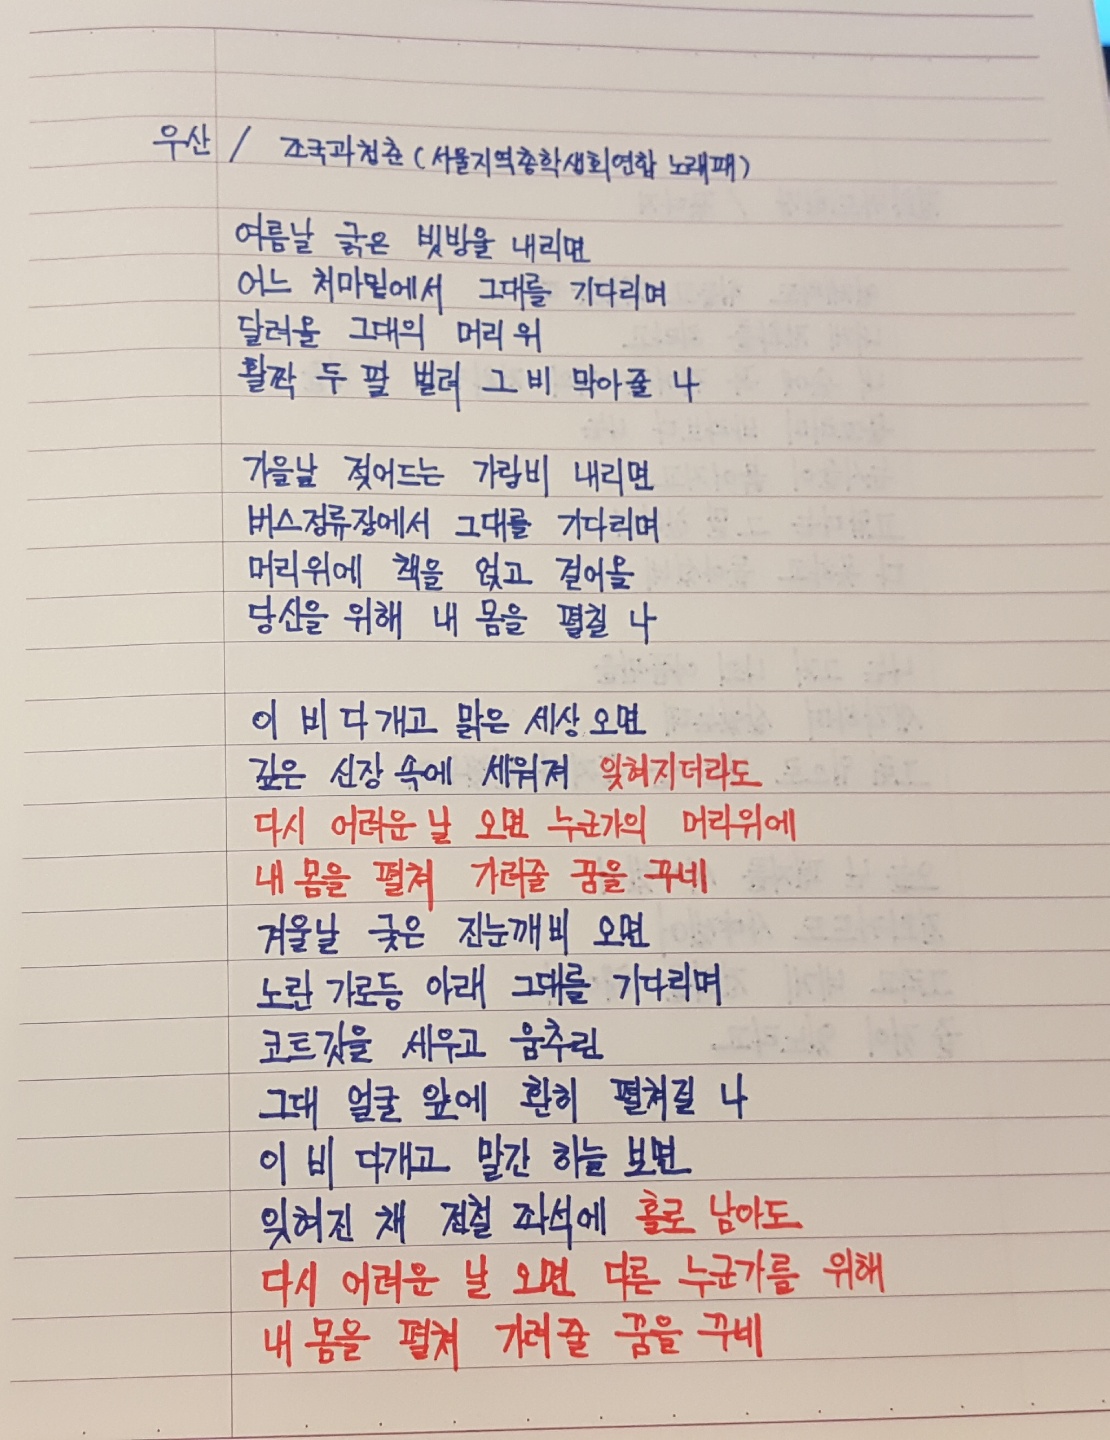 우산 / 조국과청춘 (서울지역총학생회연합 노래패)
여름날 굵은 빗방울 내리면
어느 처마밑에서 그대를 기다리며
달려올 그대의 머리 위
활짝 두 팔 벌려 그 비 막아줄 나
가을날 젖어드는 가랍비 내리면
버스정류장에서 그대를 기다리며
머리위에 책을 얹고 걸어올
당신을 위해 내 몸을 펼칠 나
이 비 다 개고 맑은 세상 오면
깊은 신장 속에 세워져 잊혀지더라도
다시 어려운 날 오면 누군가의 머리위에
내 몸을 펼쳐 가려줄 꿈을 꾸네
겨울날 궂은 진눈깨비 오면
노란 가로등 아래 그대를 기다리며
코트깃을 세우고 움추린
그대 얼굴 앞에 환히 펼쳐질 나
이 비 다개고 말간 하늘 보면
잊혀진 채 전철 좌석에 홀로 남아도
다시 어려운 날 오면 다른 누군가를 위해
내 몸을 펼쳐 가려줄 꿈을 꾸네